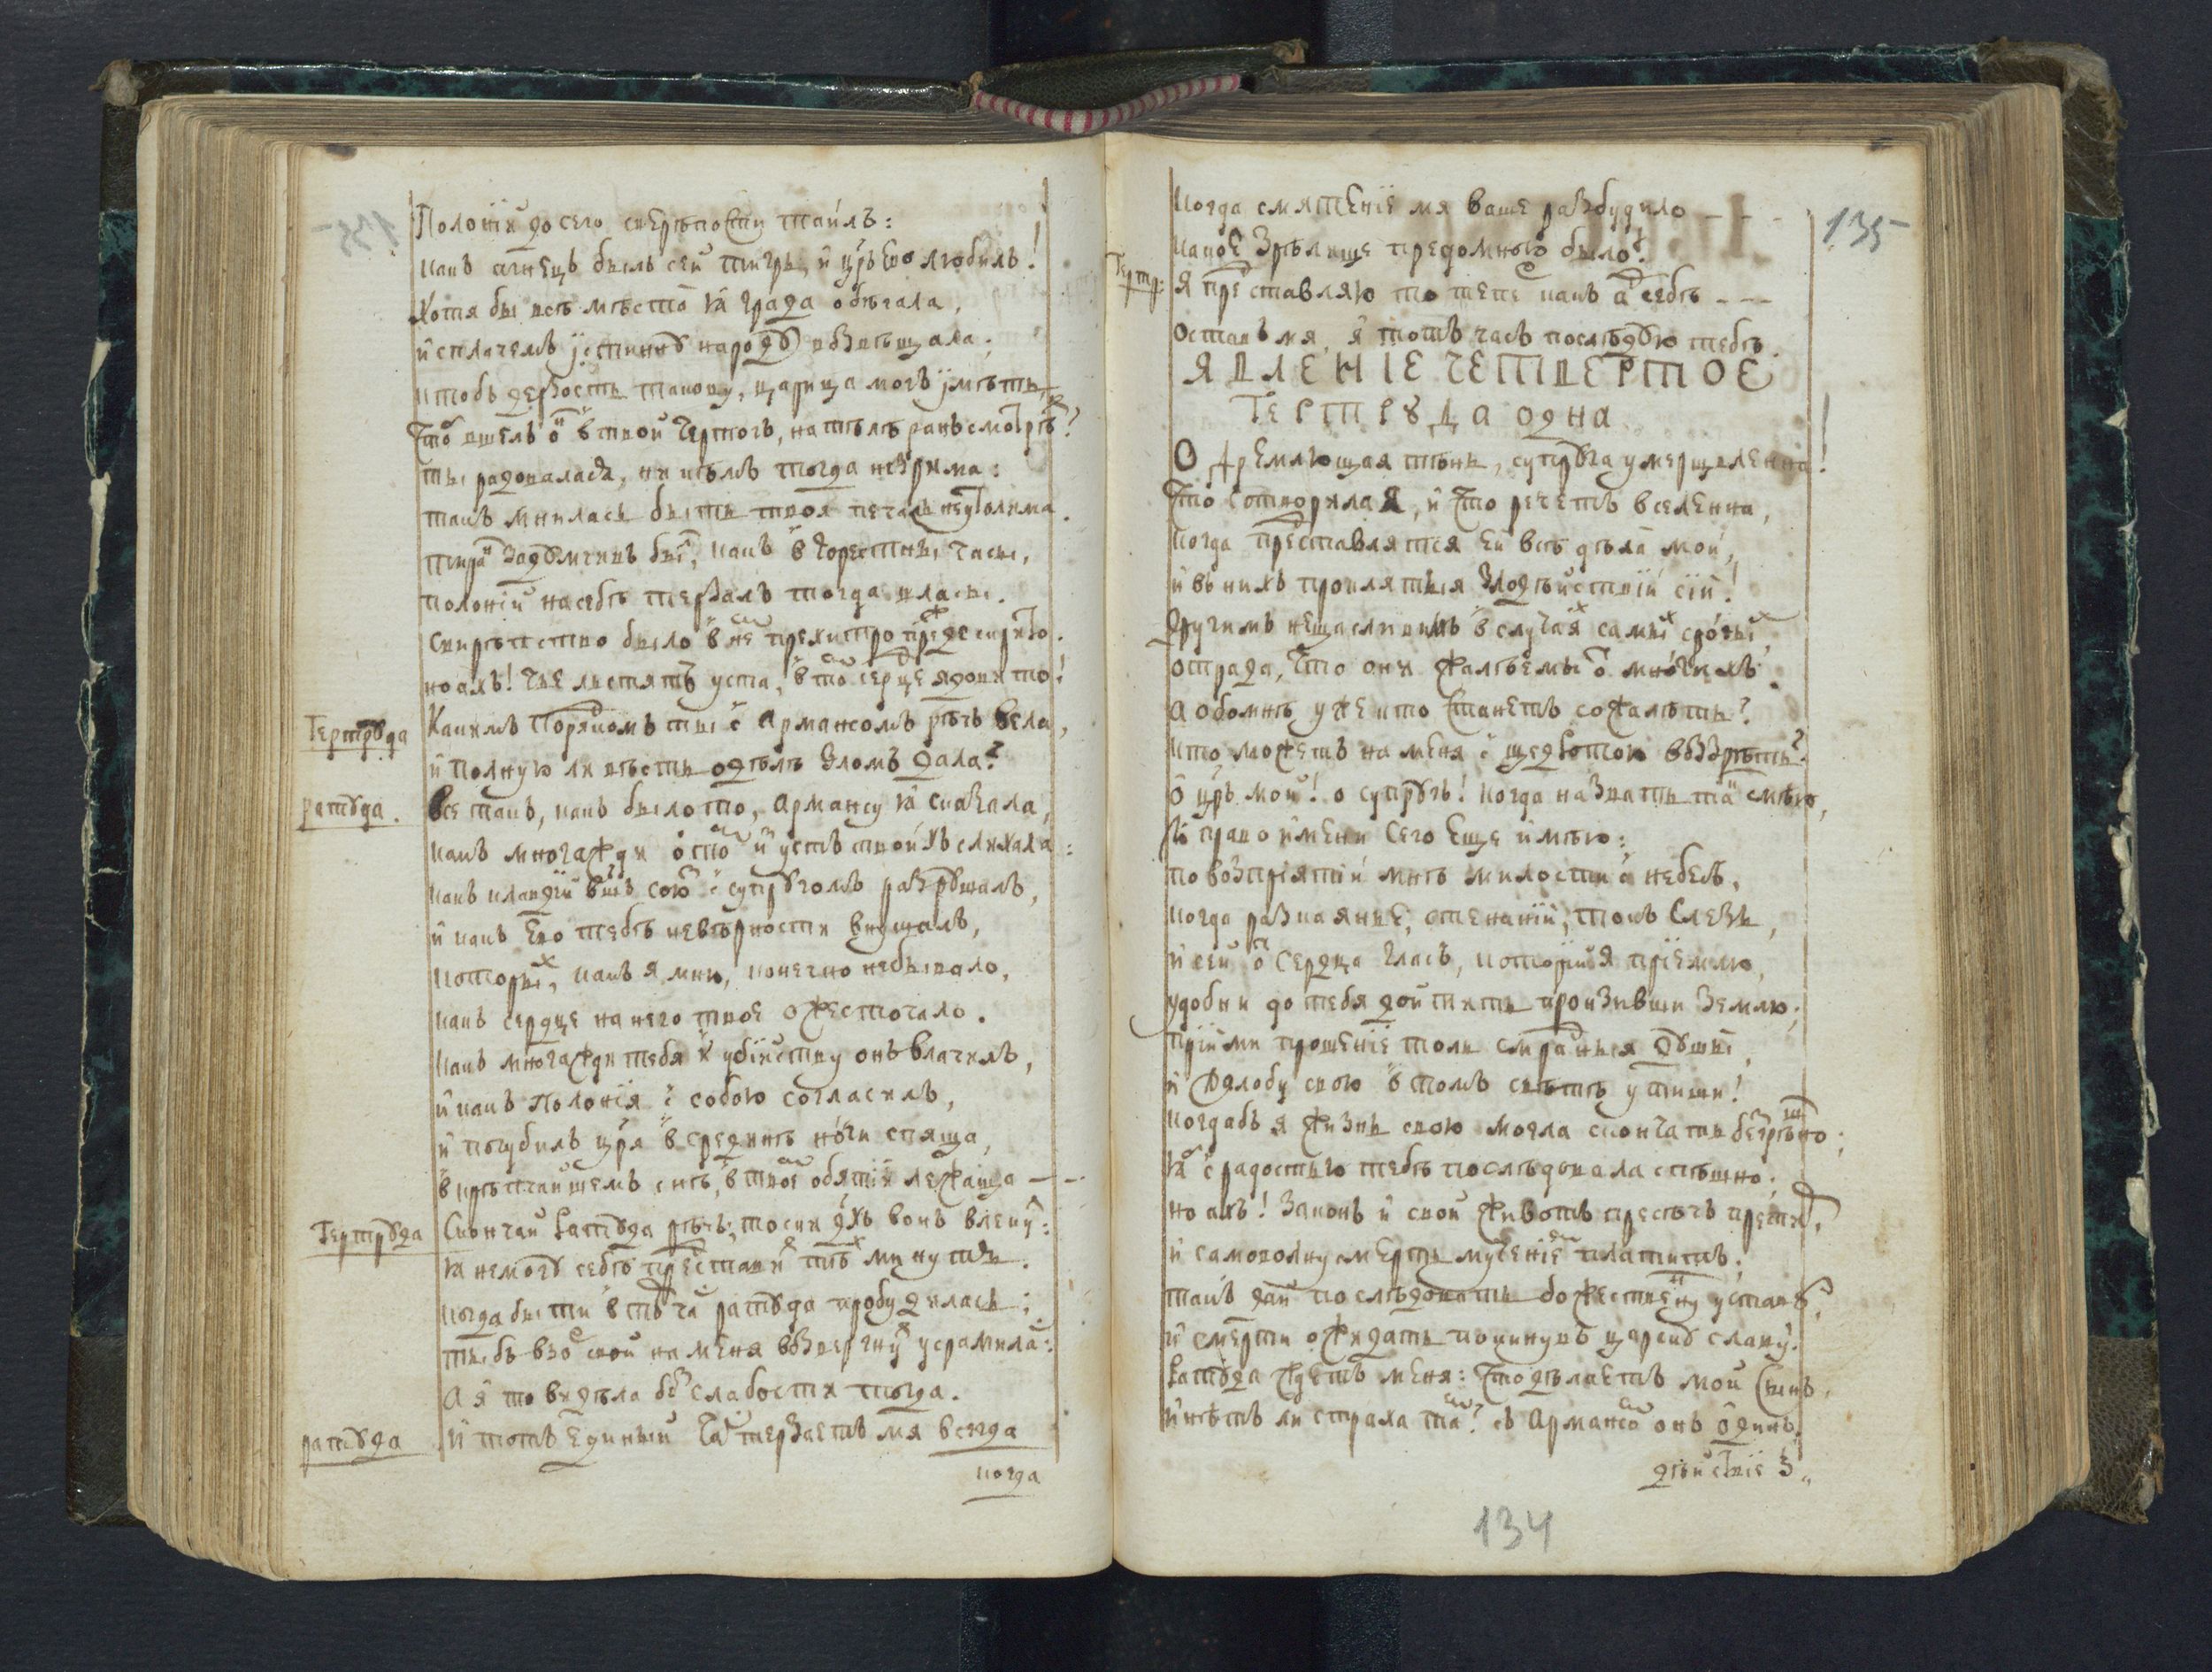 Полонїй досего сверѣпости таилъ:
какъ агнецъ былъ сей тигръ, и цр҃ь ево любилъ!
Хотя бы всѣ мѣста ꙗ града обѣгала,
и сплачемъ їстинну народꙋ возвѣщала;
ктобъ дерзость такову, царица могъ їмѣть,
что шелъ онъ в твои чертогъ, на тѣлѣ ранъ смотрѣть?
ты радовалася, ни кѣмъ тогда незрима:
такъ мнилась быть твоя печаль неутолима.
тиранъ задꙋмчивъ былъ, какъ в горестны часы,
полонїй насебѣ терзалъ тогда власы.
Свирѣпство было в нем прехитро прежде скрыто.
но ахъ! чье льстятъ уста, в томъ серце ядовито!
Гертрꙋда
Какимъ порядкомъ ты с Армансомъ рѣчь вела,
и полную ли вѣсть одѣлѣ зломъ дала?
ратꙋда.
Все такъ, какъ было то, Армансу ꙗ сказала,
какъ многажди о томъ из устъ твоихъ слихала:
какъ клавдїй вашъ союз с супрꙋгомъ разрꙋшалъ,
и какъ ево тебѣ невѣрности внушалъ,
которых, какъ я мню, конечно небывало,
какъ сердце на него твое ожесточало.
какъ многажди тебя к убїйству онъ влачилъ,
и какъ полонїя с собою согласилъ,
и погубилъ цр҃я в срединѣ ночи спяща,
в крѣпчайшемъ снѣ, в твоем обятїи лежаща — - -
Гертрꙋда
Скончай ратꙋда рѣчь; тоски дꙋхъ вонъ влекут:
ꙗ немогꙋ себѣ представить тѣх минутъ.
когда бы ты в тѣ часъ ратꙋда пробудилась;
ты бъ взоръ свой на меня возвергнув усрамилась:
А я то видѣла без слабости тогда.
ратꙋда
И тотъ единый час терзаетъ мя всегда
когда
135
Когда смятенїе мя ваше разбудило — - -
какое зрѣлище предомною было?
Гертр:
Я представляю то тепер какъ в себѣ - - -
оставь мя, я тотъ часъ послѣдꙋю тебѣ.
ЯВЛЕНІЕ ЧЕТВЕРТОЕ
ГЕРТРꙊДА ОДНА
О дремлющая тѣнь, супрꙋга умерщвленна!
Что сотворила я, и что речетъ вселенна,
когда представятся ей всѣ дѣла мои,
и въ нихъ проклятыя злодѣйствїй сїи!
Другимъ нещасливимъ в случаях самых срогых
отрада, что они жалѣемы от многихъ.
А обомнѣ уже кто станетъ сожалѣть?
кто можетъ на меня с щедротою воззрѣть?
О цр҃ь мой! о супрꙋгъ! когда назвать так смѣю,
Ꙗ право имени сего еще имѣю:
по возпрїятїи мнѣ милости с небесъ,
когда разкаянье, стенанїй, токъ слезъ,
и сей от сердца гласъ, которий я прїемлю,
удобни до тебя дойтить произивши землю;
прїими прошенїе толь смрадныя дꙋшы,
и злобу свою в томъ свѣтѣ утиши!
когдабъ я жизнь свою могла скончать безгрѣшно;
ꙗ б с радостью тебѣ послѣдовала спѣшно;
но ахъ! законъ и свой животъ пресѣчъ претит,
и самовольну смерть мученіем платитъ;
такъ дай послѣдовать божественну уставꙋ,
и смерти ожидать покинувъ царскꙋ славу.
Ратꙋда ждетъ меня: что дѣлаетъ мой сынъ,
и нѣтъ ли страха там? съ Армансомъ онъ одинъ.
дѣйствїе 3,,
134